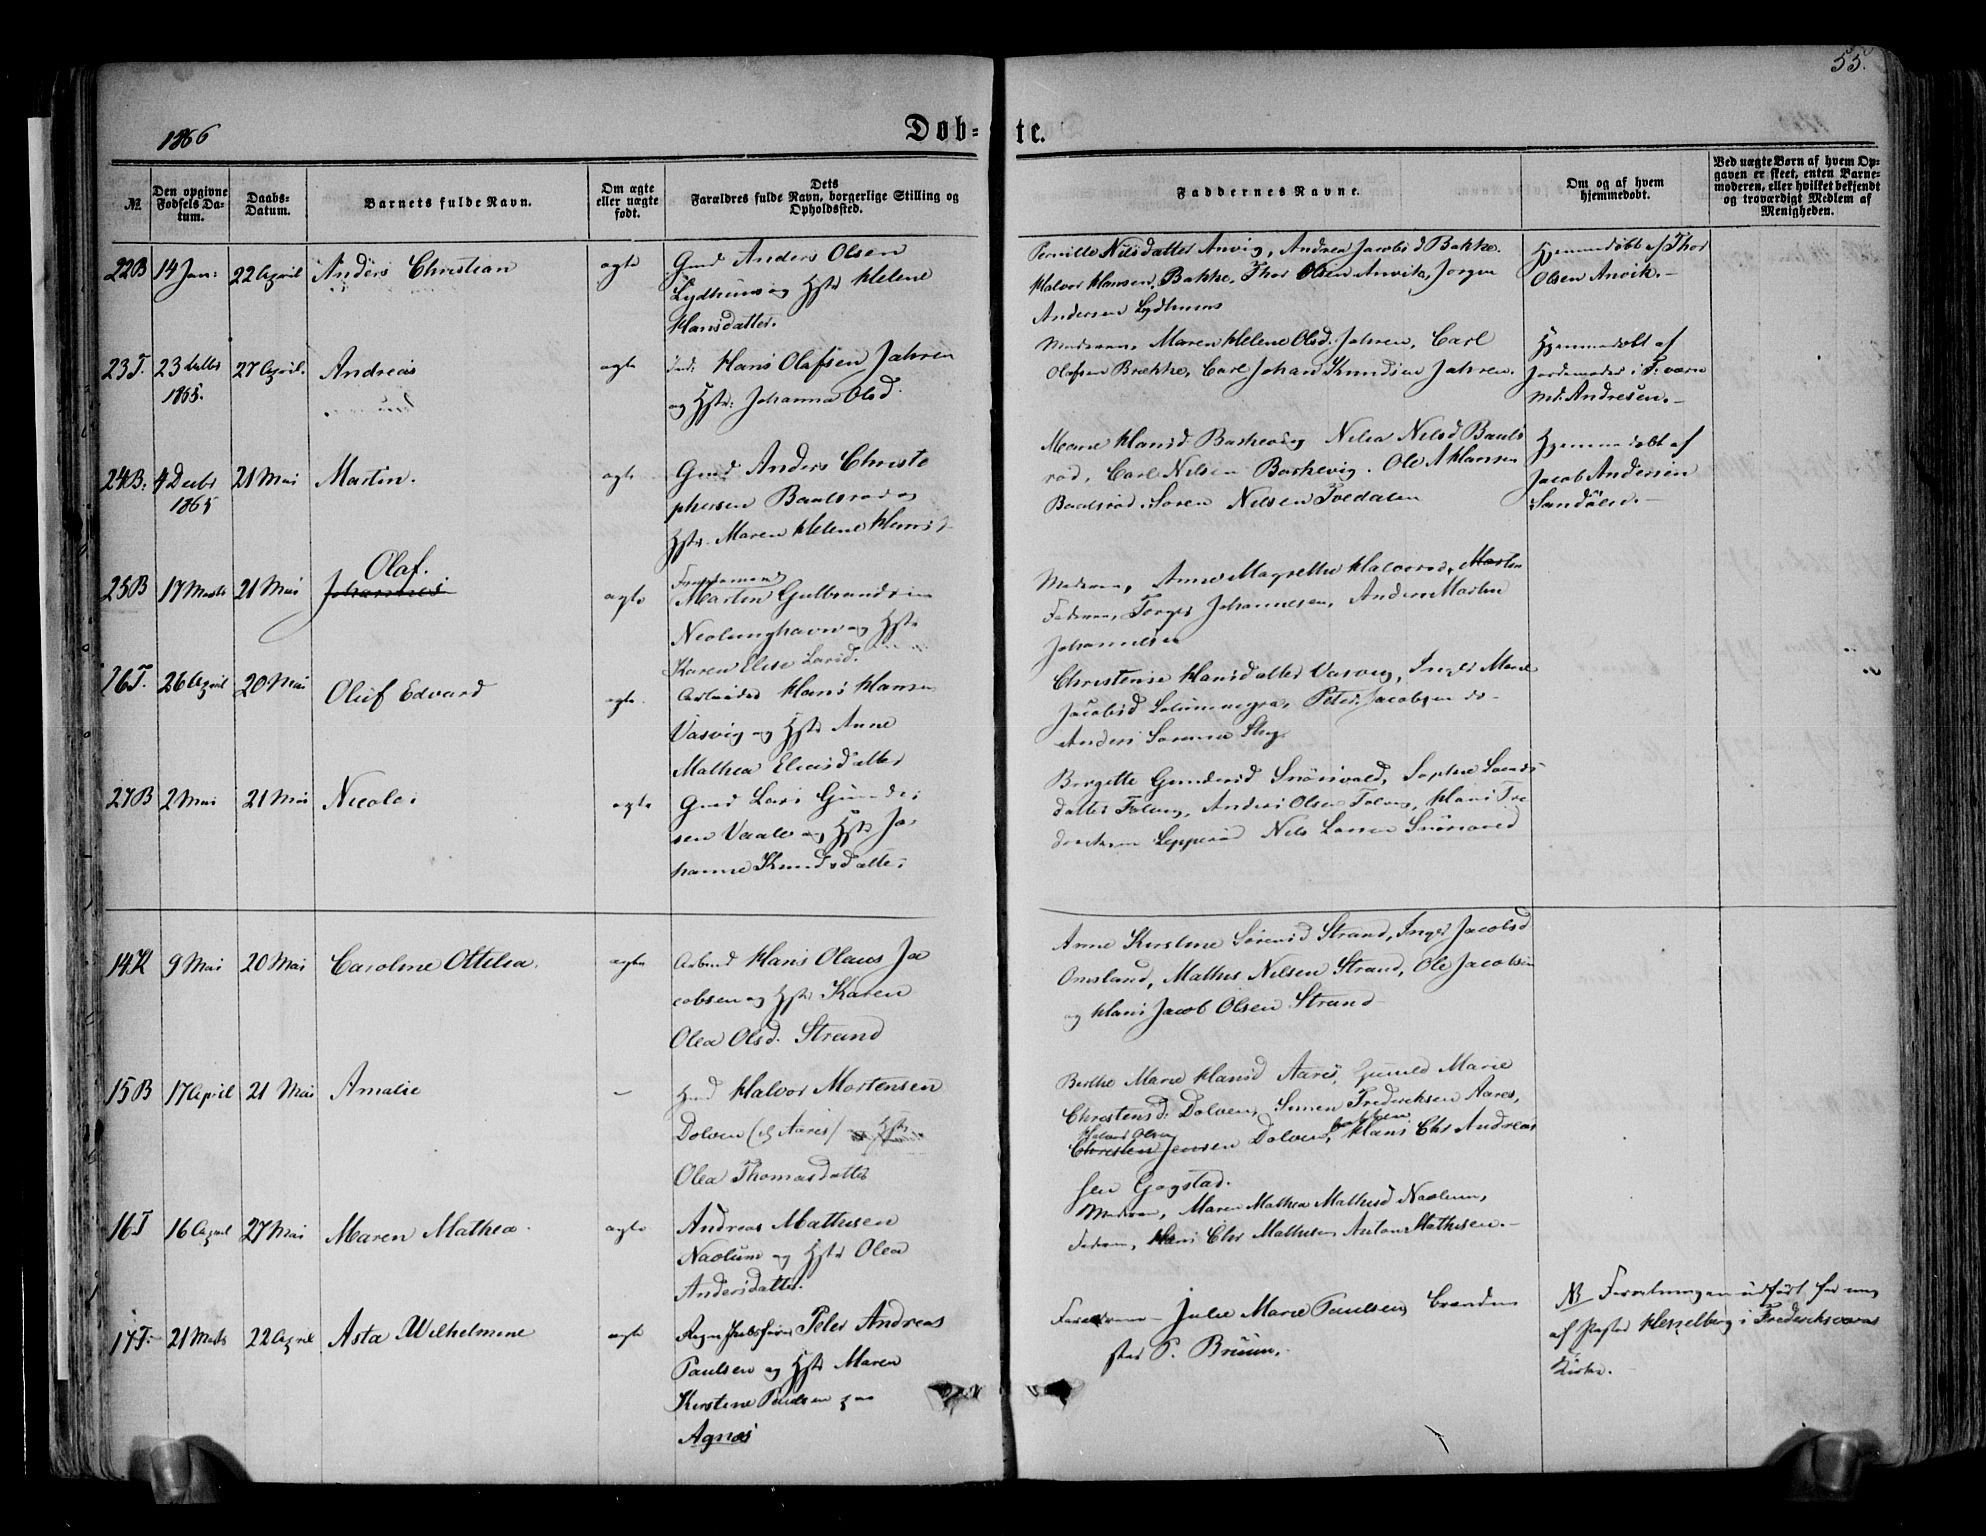 55.
1866
Døb-
te.
№
Den opgivne Fødsels Da-
tum.
Daabs-
Datum.
Barnets fulde Navn.
Om ægte
eller uægte
født.
Dets
Forældres fulde Navn, borgerlige Stilling og
Opholdssted.
Faddernes Navne.
Om og af hvem
hjemmedøbt.
Ved uægte Børn af hvem Op-
gaven er skeet, enten Barne-
moderen, eller hvilket bekjendt
og troværdigt Medlem af
Menigheden.
22B 14 Jan: 22 April Anders Christian ægte Gmd Anders Olsen
Lydhuus og Hstr Helene
Hansdatter.
Pernille Nilsdatter Anvig, Andrea Jacobsd Bakke.
Halvor Hansen Bakke, Thor Olsen Anvik, Jørgen
Andersen Lydhuus
Hjemmedøbt af Thor
Olsen Anvik.-
23T. 23 1865. 27 April. Andreas ægte Ind: Hans Olafsen Jahren
og Hstr: Johanna Olsd.
Moderen, Maren Helene Olsd. Jahren, Carl
Olafsen Brekke, Carl Johan Knudsen Jahren.
Hjemmedøbt af
Jordemoder i F: værn
Md: Andresen.-
24B: 4 Decbr 1865 21 Mai Martin. ægte Gmd Anders Christo
phersen Baalsrød og
Hstr. Maren Helene Hansd
Hansd Barkevig Nilia Nilsd Baals
rød, Carl Nilsen Barkevig. Ole A Hansen
Baalsrød. Søren Nilsen Tvedalen
Hjemmedøbt af
Jacob Andersen
Sandøen.-
25B 17 Marts 21 Mai Olaf.
Johannes
ægte
Martin Gulbrandsen
Neolunghavn og Hstr
Karen Elise Larsd.
Moderen, Anne Magrethe Halvorsd, Martin
Faderen, Torger Johannesen, Anders Martin
Johannesen
26T. 26 April 20 Mai Oluf Edvard ægte. Arbeider Hans Hansen
Vasvig og Hstr Anne
Mathea Eliasdatter
Christense Hansdatter Vasvig, Inger Marie
Jacobsd Peter Jacobsen do-
Anders
27B 2 Mai 21 Mai Nicolai ægte Gmd Lars Gunder
sen Vaale og Hstr Jo
hanne Knudsdatter
Borgitte Gundersd Snørsvald, Sophie Larsd
datter Anders Olsen Hans Fre
dricksen Lepperød Nils Larsen
14K 9 Mai 20 Mai Caroline Ottilia. ægte Arbmd Hans Olaus Ja
cobsen og Hstr Karen
Olea Olsd. Strand
Anne Kirstine Sørensd Strand, Inger Jacobsd
Omsland, Mathis Nilsen Strand, Ole Jacobsen
og Hans Jacob Olsen Strand
15B 17 April 21 Mai Amalie - Halvor Mortensen
Dolven (Aarøs) Hstr
Olea Thomasdatter
Berthe Marie Hansd Aarøs, Gunild Marie
Christensd: Dolven, Simen Fredericksen Aarøs,
Christen Jensen Dolven, Hans Chr Andreas
sen Gogstad.
16T 16 April 27 Mai Maren Mathea. ægte Andreas Mathisen
Naolum og Hstr Olea
Andersdatter.
Moderen, Maren Mathea Mathisd Naolum,
Faderen, Hans Chr Mathisen Anton Mathisen.-
17T: 21 Marts 22 April Asta Wilhelmine ægte Peter Andreas
Paulsen og Hstr Maren
Kirstine Paulsen paa
Agnes
Julie Marie Paulsen,
P. Bruun.
NB Forretningen udført for mig
af Pastor Hesselberg i Frederiksværns
Kirke.-